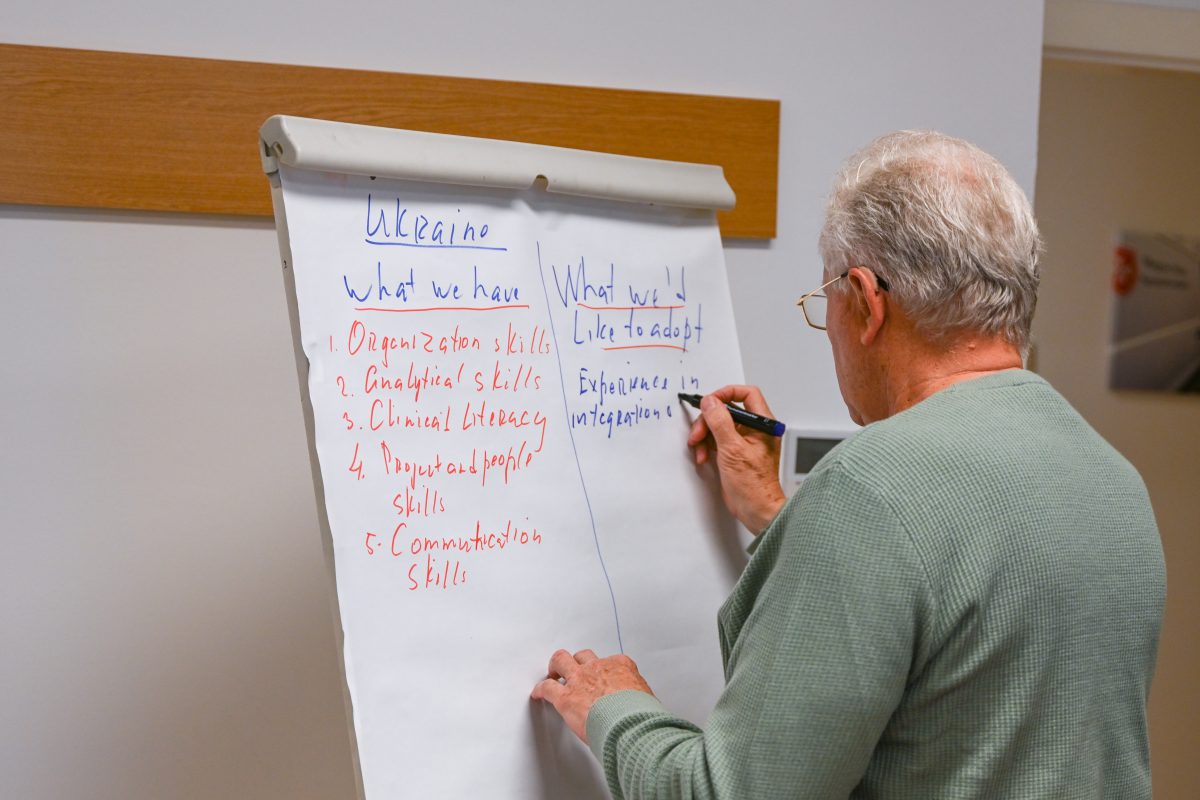 Ukraine
What we have
1. Organization skills
2. Analytical skills
3. Clinical Literacy
4. Project and people
skills
5. Communication
skills
What we'd
Like to adopt
Experience in
integration o